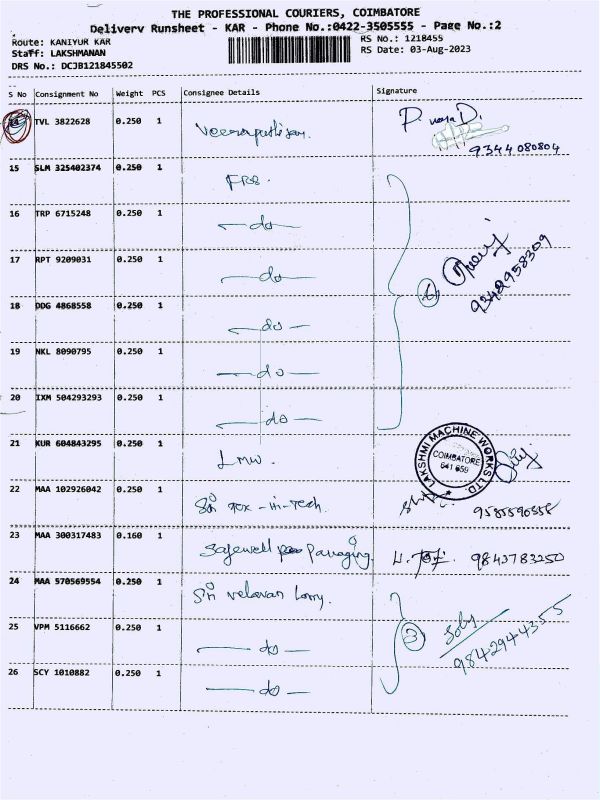 THE PROFESSIONAL COURIERS, COIMBATORE
Delivery Runsheet - KAR - Phone No.:0422-3505555 - Page No.:2
Route: KANIYUR KAR
RS No.: 1218455
Staff: LAKSHMANAN
RS Date: 03-Aug-2023
DRS No.: DCJB121845502
S No Consignment No Weight PCS Consignee Details Signature
14 TVL 3822628 0.250 1
9344080804
15 SLM 325402374 0.250 1
16 TRP 6715248 0.250 1 -do-
17 RPT 9209031 0.250 1 -do-
6
9342958309
18 DDG 4868558 0.250 1 -do-
19 NKL 8090795 0.250 1 -do-
20 IXM 504293293 0.250 1 -do-
21 KUR 604843295 0.250 1 LMW.
LAKSHMI MACHINE WORKS LTD.
COIMBATORE
641 659
22 MAA 102926042 0.250 1 Sri Tex-in-Tech.
23 MAA 300317483 0.160 1 Safewell Packaging 9843783250
24 MAA 570569554 0.250 1 Sri Velavan Lorry.
25 VPM 5116662 0.250 1 -do-
3
9842944355
26 SCY 1010882 0.250 1 -do-